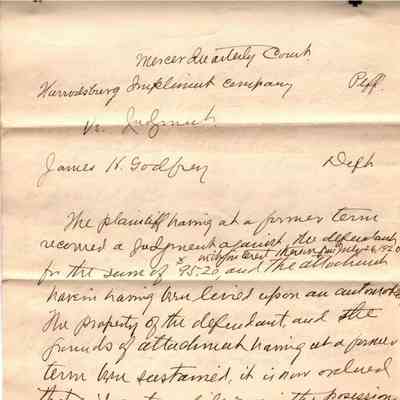 Mercer Quarterly Court
Harrodsburg Impliment Company Pltff.
vs. Judgment.
James H. Godfrey Deft
The plaintiff having at a former term
recovered a judgment against the defendant
with interest therein from July 26, 1920
for the sum of $95.20, and the attachment
herein having been levied upon an automobile
the property of the defendant, and the
grounds of attachment having at a former
term been sustained, it is now ordered
in the possession